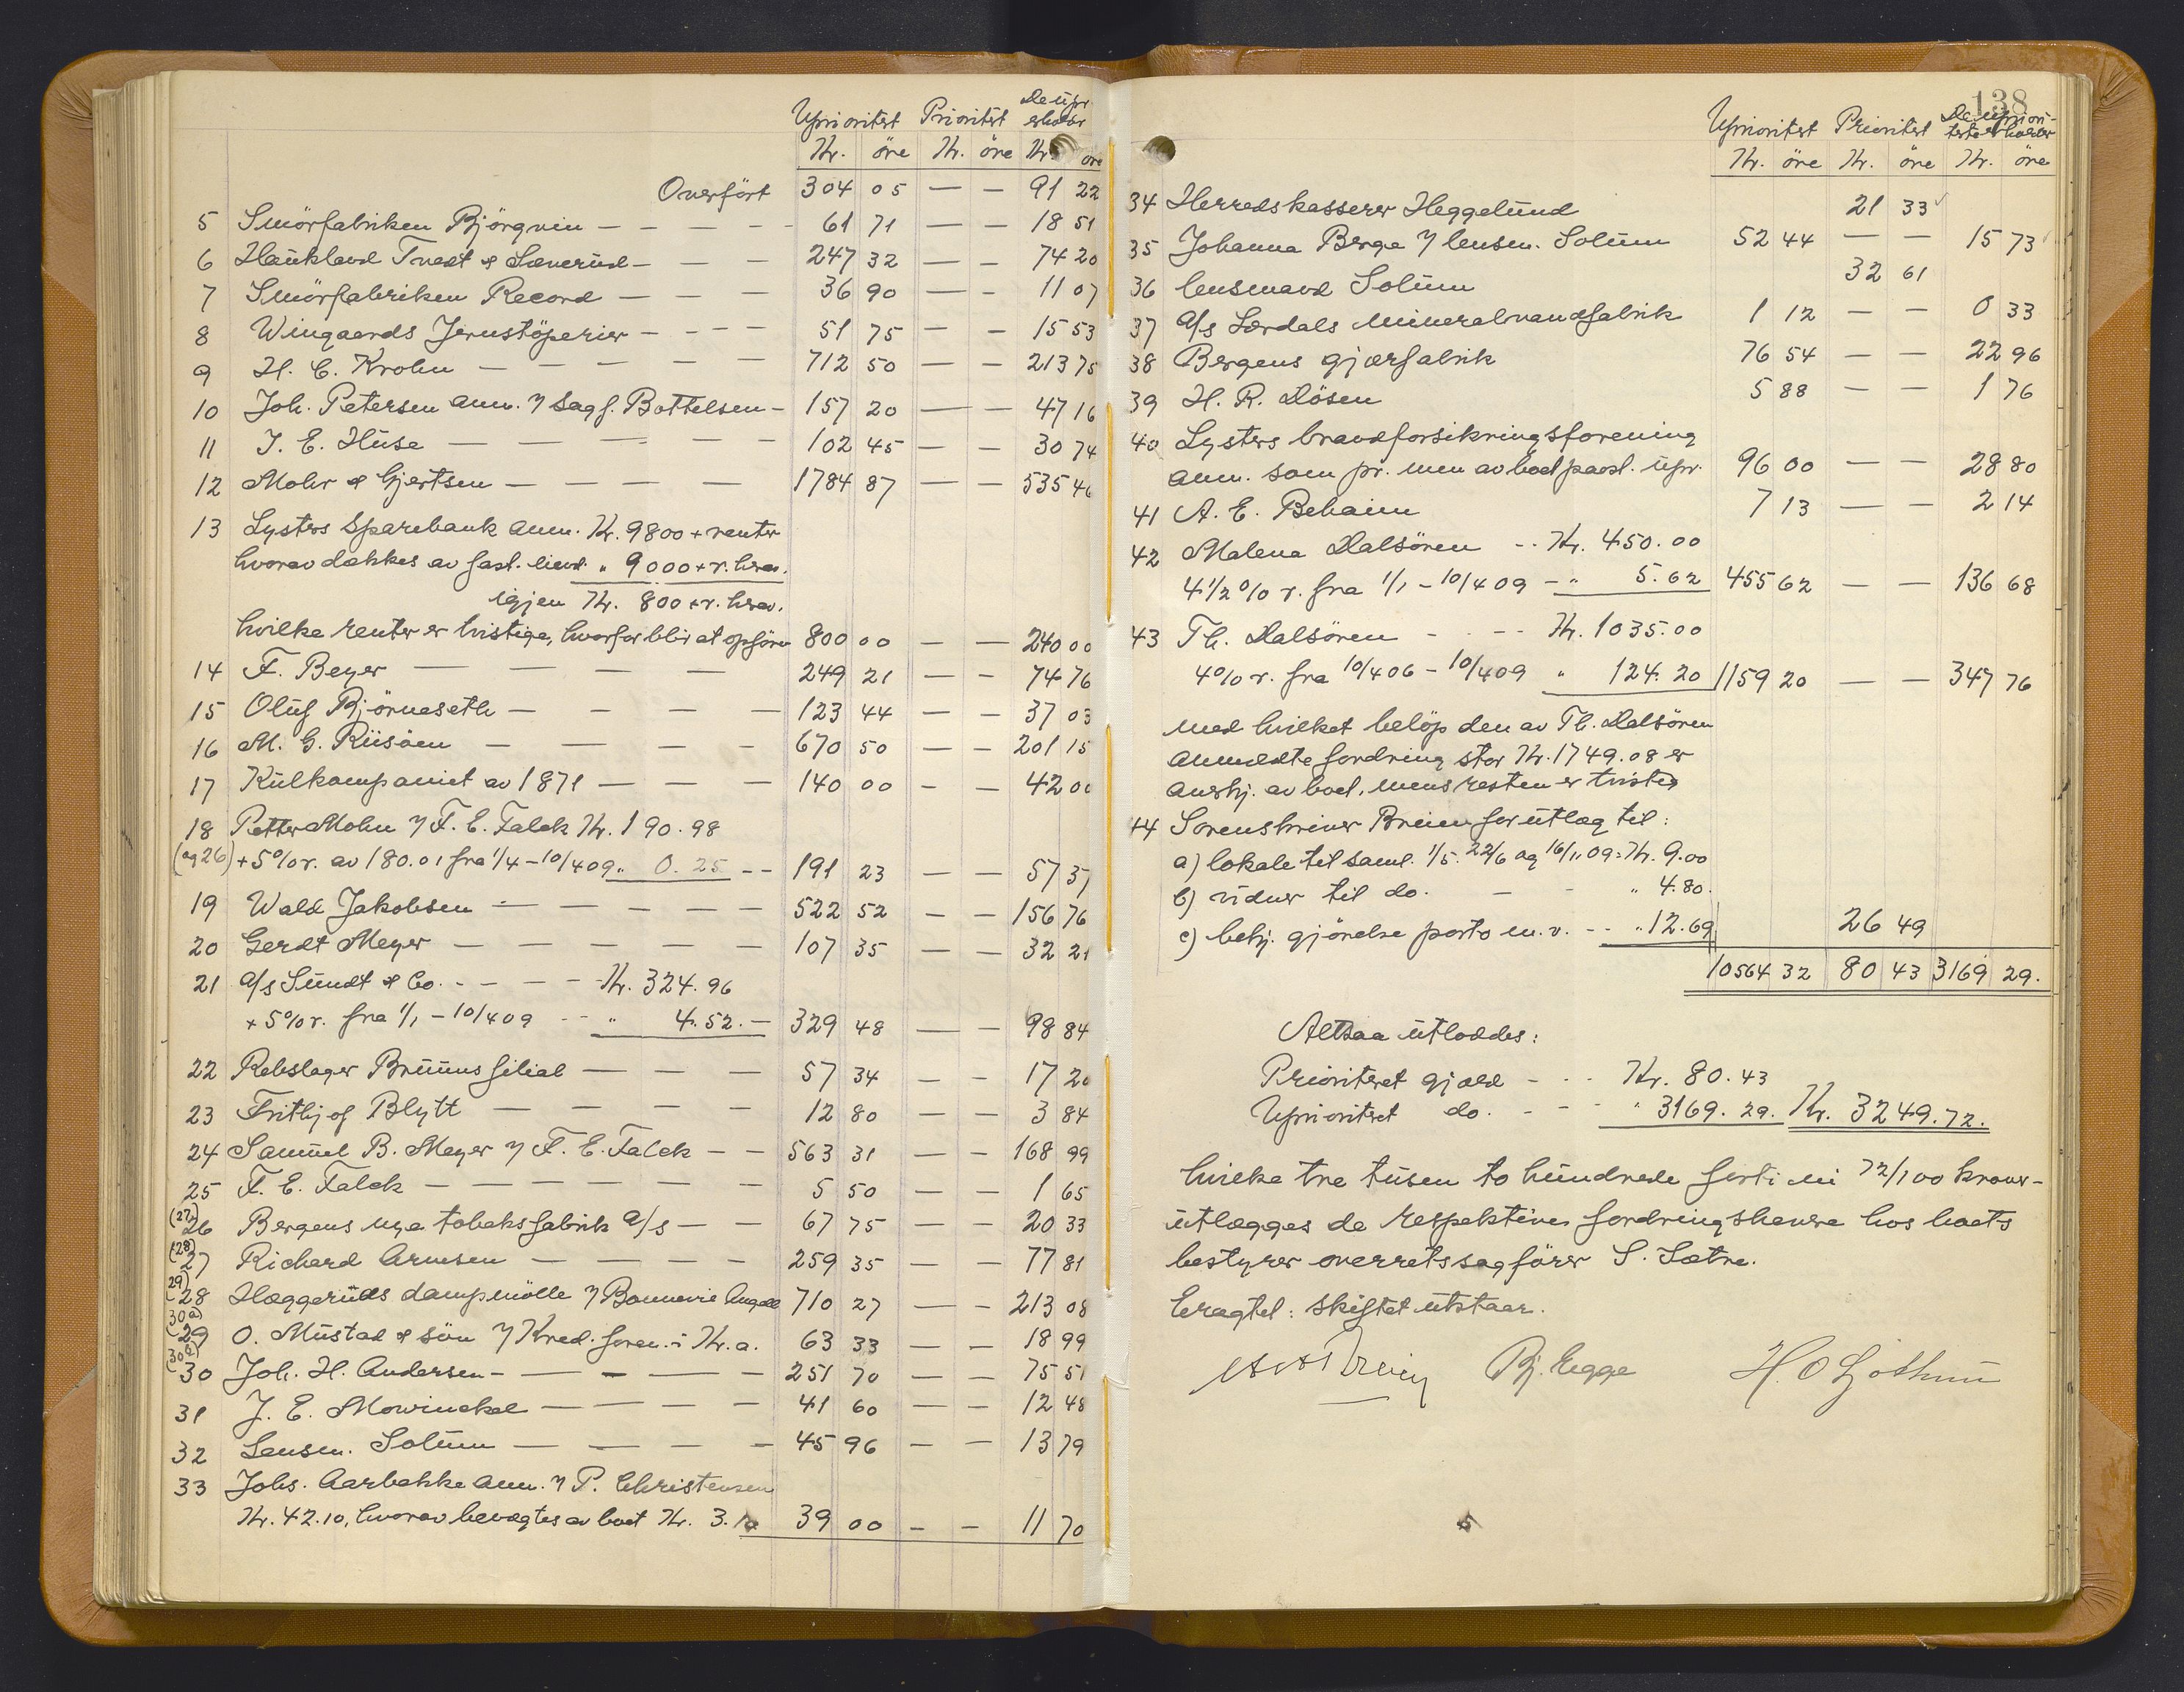 Uprioritet Prioritet De upr. erholder
Kr. öre Kr. öre Kr. öre
Overfört 304 05 — — 91 22
5 Smörfabriken Björgvin — — — — 61 71 — — 18 51
6 Haukland Tvedt & Sæverud — — — 247 32 — — 74 20
7 Smörfabriken Record — — — 36 90 — — 11 07
8 Wingaards Jernstöperier — — — — 51 75 — — 15 53
9 H. C. Krohn — — — — — 712 50 — — 213 75
10 Joh. Petersen anm. v/ sagf. Bottelsen — 157 20 — — 47 16
11 J. E. Huse — — — — — 102 45 — — 30 74
12 Mohr & Gjertsen — — — — 1784 87 — — 535 46
13 Lysters Sparebank anm. Kr. 9800 + renter
hvorav dækkes av fast. eiend. " 9000 + r. herav.
igjen Kr. 800 + r. herav.
hvilke renter er tvistige, hvorfor blir at opföre 800 00 — — 240 00
14 F. Beyer — — — — 249 21 — — 74 76
15 Oluf Björneseth — — — — 123 44 — — 37 03
16 M. G. Riisöen — — — — 670 50 — — 201 15
17 Kulkompaniet av 1871 — — — 140 00 — — 42 00
18 Petter Mohn v/ F. E. Falck Kr. 190.98
(og 26) + 5% r. av 180.01 fra 1/4 - 10/4 09 " 0.25 — — 191 23 — — 57 37
19 Wald Jakobsen — — — — — 522 52 — — 156 76
20 Gerdt Meyer — — — — — 107 35 — — 32 21
21 a/s Sundt & Co. - — — — Kr. 324.96
+ 5% r. fra 1/1 - 10/4 09 -- " 4.52. — 329 48 — — 98 84
22 Rebslager Bruuns filial — — — 57 34 — — 17 20
23 Frithjof Blytt — — — — 12 80 — — 3 84
24 Samuel B. Meyer v/ F. E. Falck — — 563 31 — — 168 99
25 F. E. Falck — — — — — — 5 50 — — 1 65
(27) 26 Bergens nye tobaksfabrik a/s — — 67 75 — — 20 33
(28) 27 Richard Arnesen — — — — 259 35 — — 77 81
(29) 28 Hæggeruds dampmölle v/ Bonnevie Angell 710 27 — — 213 08
(30a) 29 O. Mustad & sön v/ Kred. foren. i Kr.a. 63 33 — — 18 99
(30b) 30 Joh. H. Andersen - — — — — 251 70 — — 75 51
31 J. E. Mowinckel — — — — 41 60 — — 12 48
32 Lensm. Solum — — — — 45 96 — — 13 79
33 Johs. Aarbakke anm. v/ P. Christensen
Kr. 42.10, hvorav bevægtes av boet Kr. 3.10 39 00 — — 11 70
138
Uprioritet Prioritet De upriori-terte erholder
Kr. öre Kr. öre Kr. öre
34 Herredskasserer Heggelund 21 33
35 Johanna Berge v/ lensm. Solum 52 44 — — 15 73
36 lensmand Solum 32 61
37 a/s Lærdals mineralvandfabrik 1 12 — — 0 33
38 Bergens gjærfabrik 76 54 — — 22 96
39 H. R. Dösen 5 88 — — 1 76
40 Lysters brandforsikringsforening
anm. som pr. men av boet paast. upr. 96 00 — — 28 80
41 A. E. Behaim 7 13 — — 2 14
42 Malena Dalsören -- Kr. 450.00
4 1/2 % r. fra 1/1 - 10/4 09 - " 5.62 455 62 — — 136 68
43 Th. Dalsören - - -- Kr. 1035.00
4% r. fra 10/4 06 - 10/4 09 " 124.20 1159 20 — — 347 76
med hvilket belöp den av Th. Dalsören
anmeldte fordring stor Kr. 1749.08 er
anerkj. av boet, mens resten er tvistig
44 Sorenskriver Breien for utlæg til:
a) lokale til saml. 1/5. 22/6 og 16/11 09: Kr. 9.00
b) vidner til do. - - " 4.80.
c) bekj. gjörelse porto m. v. -- " 12.69 26 49
10564 32 80 43 3169 29.
Altsaa utloddes:
Prioritert gjæld - - - Kr. 80.43
Uprioritert do. - - - " 3169.29. Kr. 3249.72.
hvilke tre tusen to hundrede förti ni 72/100 kroner -
utlægges de respektive fordringshavere hos boets
bestyrer overretssagförer S. Sætre.
Eragtet: Skiftet utstaar.
Bj. Legge